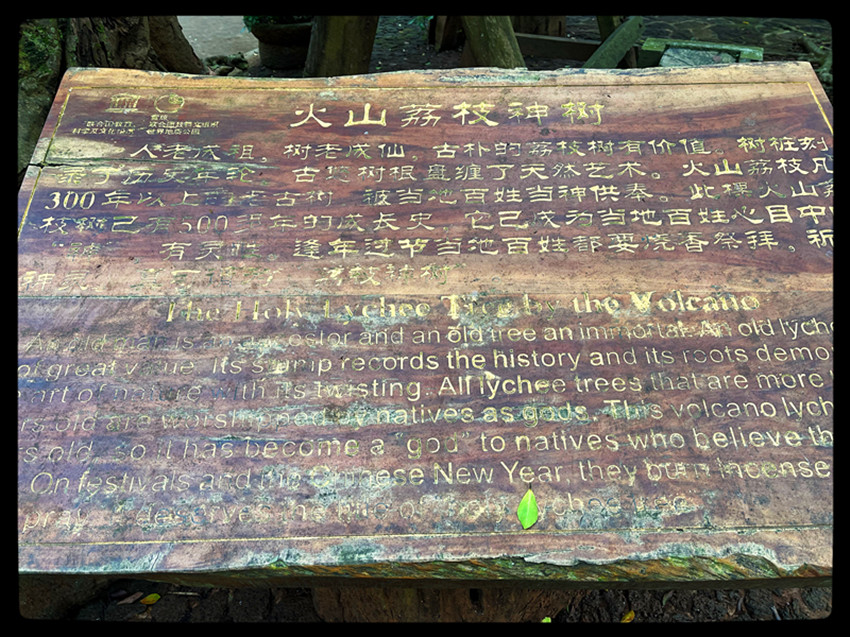 联合国教育、
科学及文化组织
联合国教科文组织
世界地质公园
火山荔枝神树
人老成祖，树老成仙，古朴的荔枝树有价值。树桩刻
录了历史年轮，古荔树根盘缠了天然艺术。火山荔枝凡
300年以上 老古树 被当地百姓当神供奉。此棵火山荔
枝树已有500多年的成长史，它已成为当地百姓心目中
有灵性。逢年过节当地百姓都要烧香祭拜，祈
神灵
The Holy Lychee Tree by the Volcano
An old man is an ancestor and an old tree an immortal. An old lyche
of great value. Its stump records the history and its roots demo
art of nature with its twisting. All lychee trees that are more
rs old are worshipped by natives as gods. This volcano lych
s old, so it has become a "god" to natives who believe th
On festivals and the Chinese New Year, they burn incense
pray. It deserves the title of holy lychee tree.